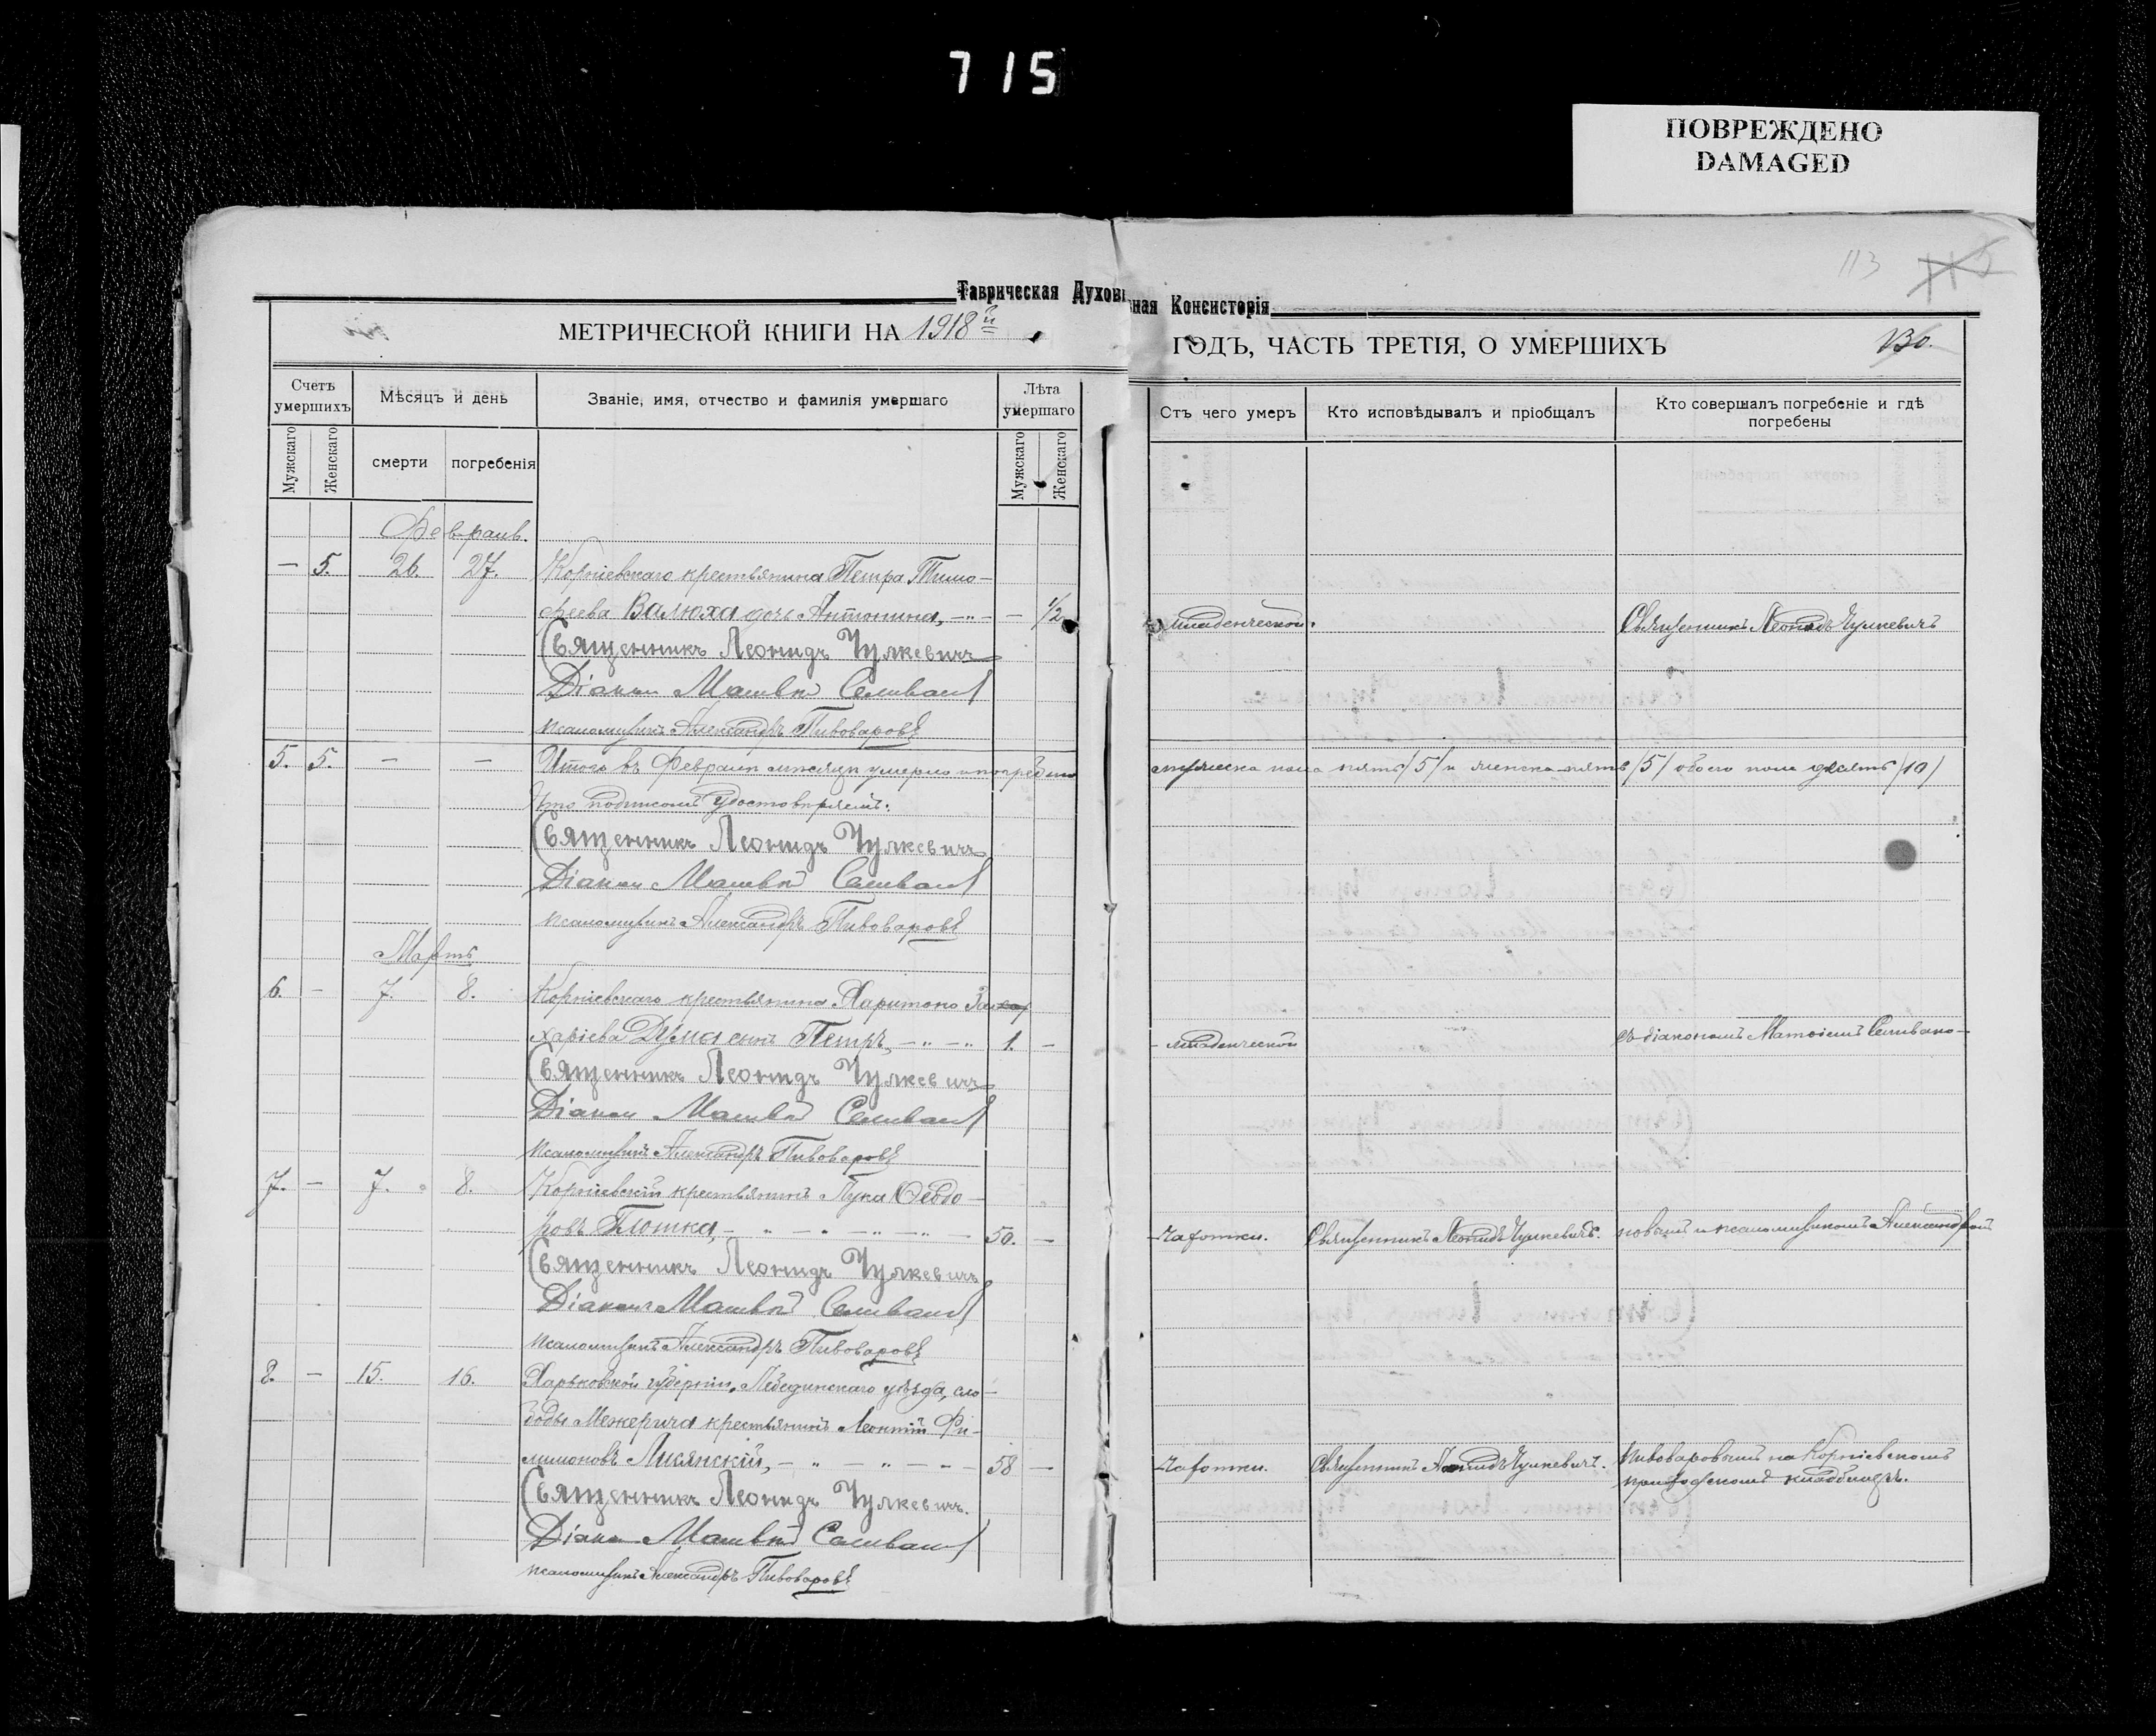 715
ПОВРЕЖДЕНО
DAMAGED
113
Таврическая Духовная Консисторія
МЕТРИЧЕСКОЙ КНИГИ НА 1918 й
ГОДЪ, ЧАСТЬ ТРЕТІЯ, О УМЕРШИХЪ
130.
Счетъ умершихъ
Мѣсяцъ и день
Званіе, имя, отчество и фамилія умершаго
Лѣта умершаго
Отъ чего умеръ
Кто исповѣдывалъ и пріобщалъ
Кто совершалъ погребеніе и гдѣ погребены
Мужскаго
Женскаго
смерти
погребенія
Мужскаго
Женскаго
Февраль.
— 5. 26. 27. Корніевскаго крестьянина Петра Тимо-
феева Валюха дочь Антонина, — 1/2 младенческой. Священникъ Леонидъ Чулкевичъ
Священникъ Леонидъ Чулкевичъ
Діаконъ Матвѣй Селиванов
псаломщикъ Александръ Пивоваровъ
5. 5. — — Итого въ Февралѣ мѣсяцѣ умерло и погребено мужеска пола пять /5/ и женска пять /5/ обоего пола десять /10/
Что подписомъ удостовѣряемъ:
Священникъ Леонидъ Чулкевичъ
Діаконъ Матвѣй Селиванов
псаломщикъ Александръ Пивоваровъ
Мартъ
6. — 7. 8. Корніевскаго крестьянина Харитона За
харіева Дума сынъ Петръ, 1. — младенческой съ діакономъ Матѳіемъ Селивано-
Священникъ Леонидъ Чулкевичъ
Діаконъ Матвѣй Селиванов
псаломщикъ Александръ Пивоваровъ
7. — 7. 8. Корніевскій крестьянинъ Лука Ѳеодо-
ровъ Плютка, 50. — чахотки. Священникъ Леонидъ Чулкевичъ. новымъ и псаломщикомъ Александромъ
Священникъ Леонидъ Чулкевичъ
Діаконъ Матвѣй Селиванов
псаломщикъ Александръ Пивоваровъ
8. — 15. 16. Харьковской губерніи, Лебединскаго уѣзда, сло-
боды Межерича крестьянинъ Леонтій Фи-
лимоновъ Лисянскій, 58 — чахотки. Священникъ Леонидъ Чулкевичъ. Пивоваровымъ на Корніевскомъ
приходскомъ кладбищѣ.
Священникъ Леонидъ Чулкевичъ.
Діаконъ Матвѣй Селиванов
псаломщикъ Александръ Пивоваровъ